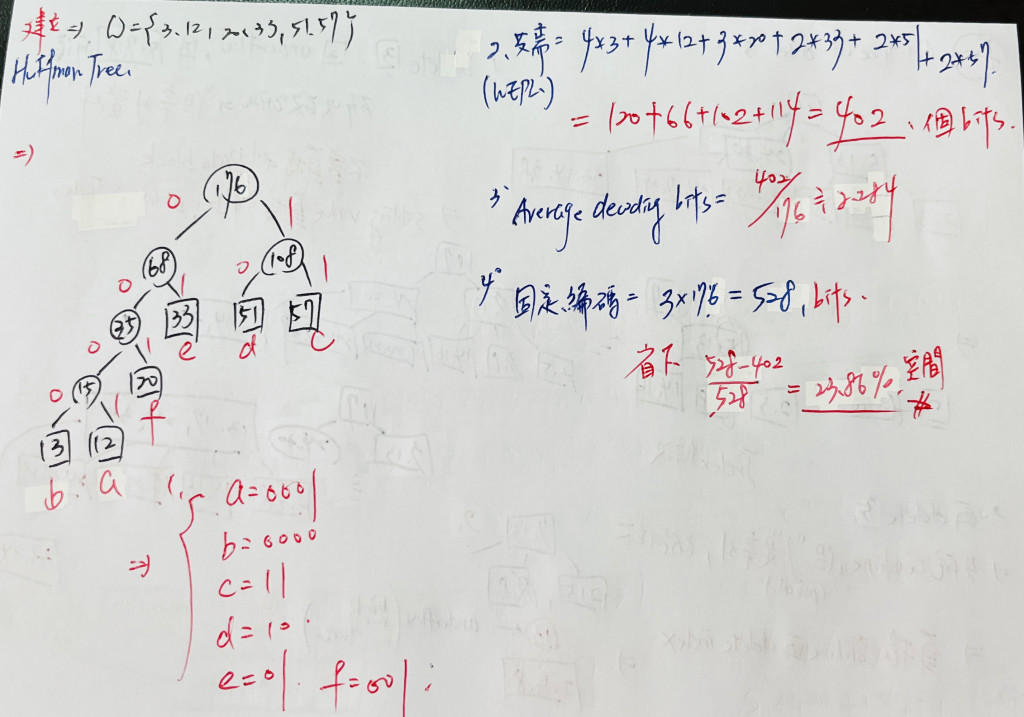 建立⇒ W={3,12,20,33,51,57}
Huffman Tree.
⇒
176
0 1
68 108
0 1 0 1
35 33 51 57
e d c
0 1
15 20
f
0 1
3 12
b a
1、
⇒ a=0001
b=0000
c=11
d=10.
e=01. f=001.
2、共需= 4*3+4*12+3*20+2*33+2*51+2*57.
(WEPL)
=120+66+102+114=402、個bits.
3、Average decoding bits= 402/176≒2.284
4° 固定編碼= 3×176=528, bits.
省下 528-402/528 = 23.86%. 空間 #